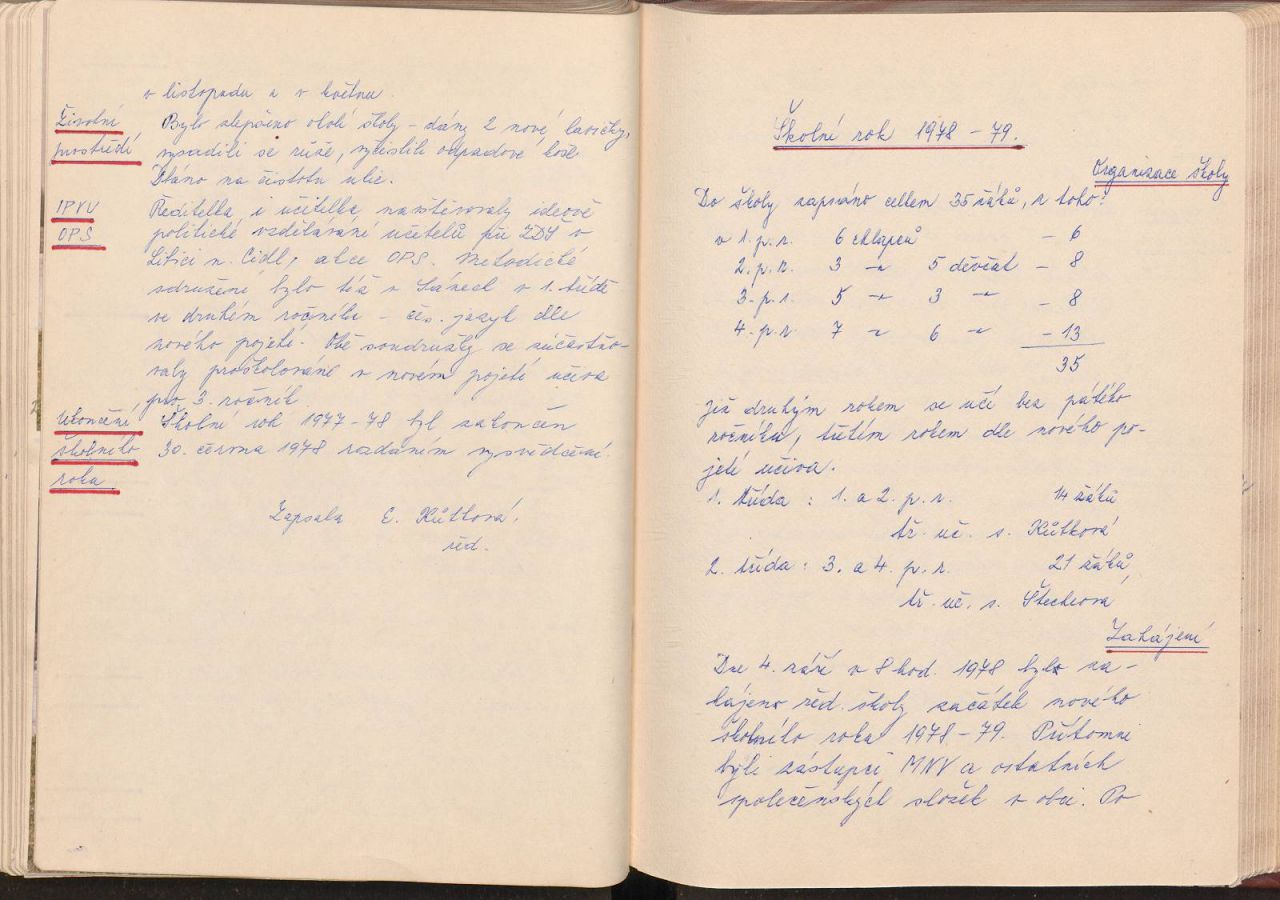 v listopadu a v květnu.
Životní
prostředí
Bylo zlepšeno okolí školy - dány 2 nové lavičky,
vysadili se růže, vyčistili odpadové koše.
Dbáno na čistotu ulic.
IPVU
OPS
Ředitelka i učitelka navštěvovaly ideově
politické vzdělávání učitelů při ZDŠ v
Libici n. Cidl., akce OPS. Metodické
sdružení bylo též v Sánech v 1. třídě
ve druhém ročníku - čes. jazyk dle
nového pojetí. Obě soudružky se zúčastňo-
valy proškolování v novém pojetí učiva
pro 3. ročník.
Ukončení
školního
roku
Školní rok 1977-78 byl zakončen
30. června 1978 rozdáním vysvědčení.
Zapsala E. Kůtková.
řed.
Školní rok 1978 - 79.
Organizace školy
Do školy zapsáno celkem 35 žáků, z toho:
v 1. p. r. 6 chlapců - 6
2. p. r. 3 -"- 5 děvčat - 8
3. p. r. 5 -"- 3 -"- - 8
4. p. r. 7 -"- 6 -"- - 13
35
Již druhým rokem se učí bez pátého
ročníku, třetím rokem dle nového po-
jetí učiva.
1. třída : 1. a 2. p. r. 14 žáků
tř. uč. s. Kůtková
2. třída : 3. a 4. p. r. 21 žáků
tř. uč. s. Štechrová
Zahájení
Dne 4. září v 8 hod. 1978 bylo za-
hájeno řed. školy začátek nového
školního roku 1978 - 79. Přítomni
byli zástupci MNV a ostatních
společenských složek v obci. Po